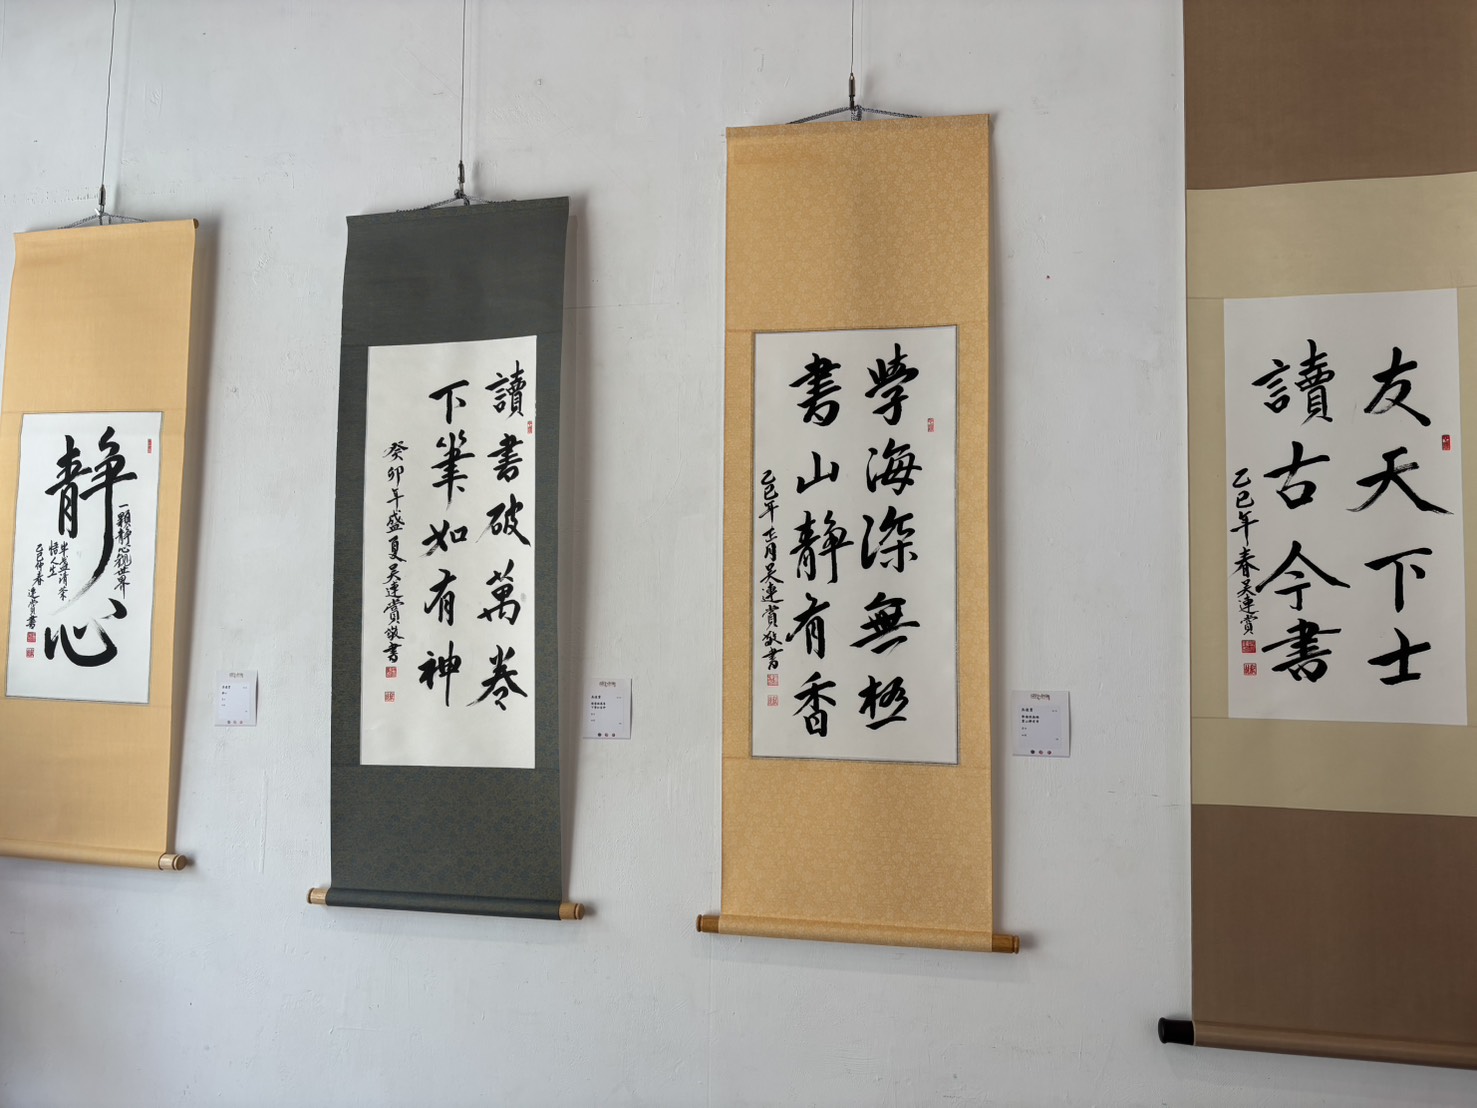 靜心
一顆靜心觀世界
半盞清茶
悟人生
乙巳仲春
連賞書
讀書破萬卷
下筆如有神
癸卯年盛夏吴連賞敬書
學海深無極
書山靜有香
乙巳年正月吴連賞敬書
友天下士
讀古今書
乙巳年春吴連賞